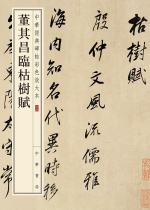 中華經典碑帖彩色放大本
董其昌臨枯樹賦
中華書局
枯樹賦
殷仲文風流儒雅
海內知名代異時移